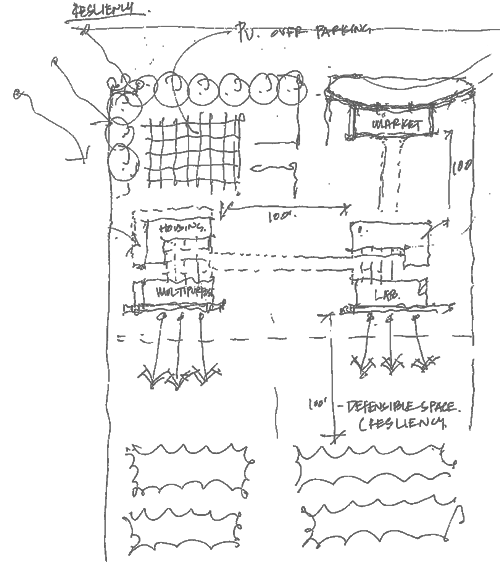 RESLIENCY.
PV. OVER PARKING
MARKET
100'
100'
HOUSING.
MULTIPURPOSE
LAB.
100'
- DEFENSIBLE SPACE.
(RESLIENCY.